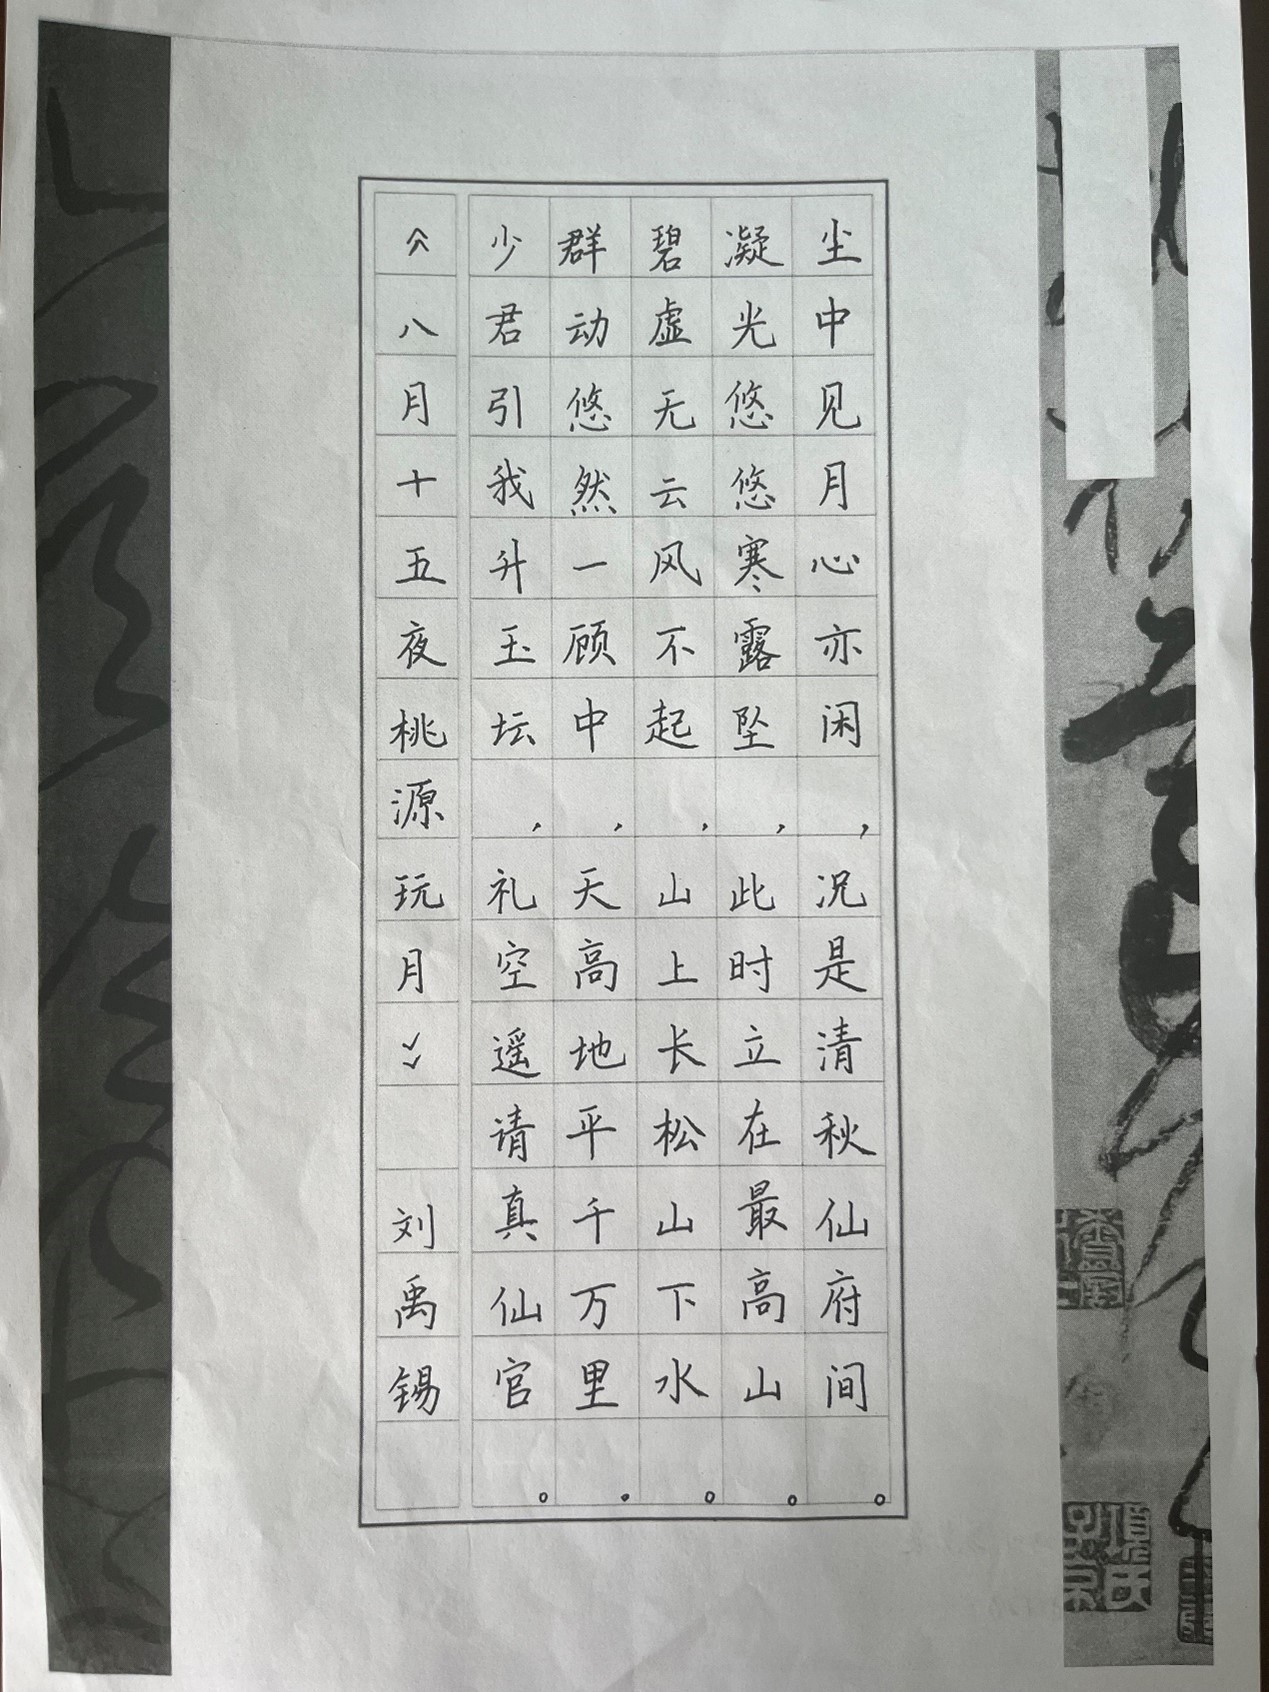 尘中见月心亦闲，况是清秋仙府间。
凝光悠悠寒露坠，此时立在最高山。
碧虚无云风不起，山上长松山下水。
群动悠然一顾中，天高地平千万里。
少君引我升玉坛，礼空遥请真仙官。
《八月十五夜桃源玩月》 刘禹锡